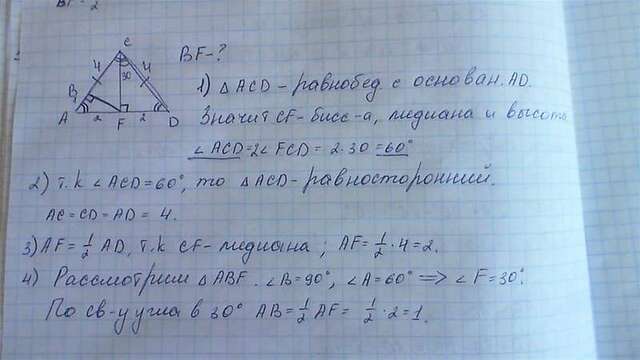 BF = 2
C
4
4
30
B
A
2
F
2
D
BF-?
1) △ACD - равнобед. с основан. AD.
Значит CF - бисс-а, медиана и высота
∠ACD = 2∠FCD = 2·30 = 60°
2) т.к ∠ACD = 60°, то △ACD - равносторонний.
AC = CD = AD = 4.
3) AF = 1/2 AD, т.к CF - медиана; AF = 1/2·4 = 2.
4) Рассмотрим △ABF. ∠B = 90°, ∠A = 60° ⟹ ∠F = 30°.
По св-у угла в 30° AB = 1/2 AF = 1/2·2 = 1.